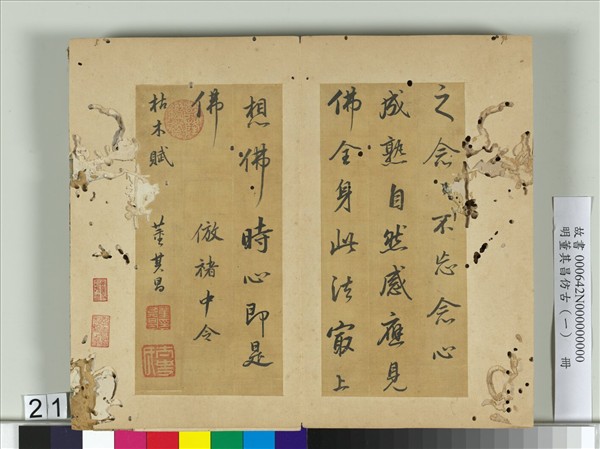 之念不忘念心
成熟自然感應見
佛全身此法最上
想佛時心即是
佛
倣褚中令
枯木賦
董其昌
故書 000642N000000000
明董其昌仿古（一） 冊
21